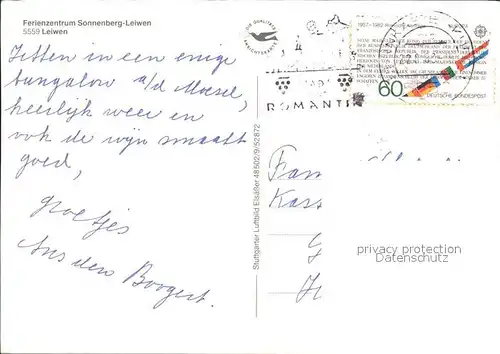 Ferienzentrum Sonnenberg-Leiwen
5559 Leiwen
Zitten in een enige
bungalow a/d Moesel,
heerlijk weer en
ook de wijn smaakt
goed,
groetjes
den Boogert.
Stuttgarter Luftbild Elsäßer 48502/9/52872
ROMANTI
60
DEUTSCHE BUNDESPOST
Fam
Kass
privacy protection
Datenschutz